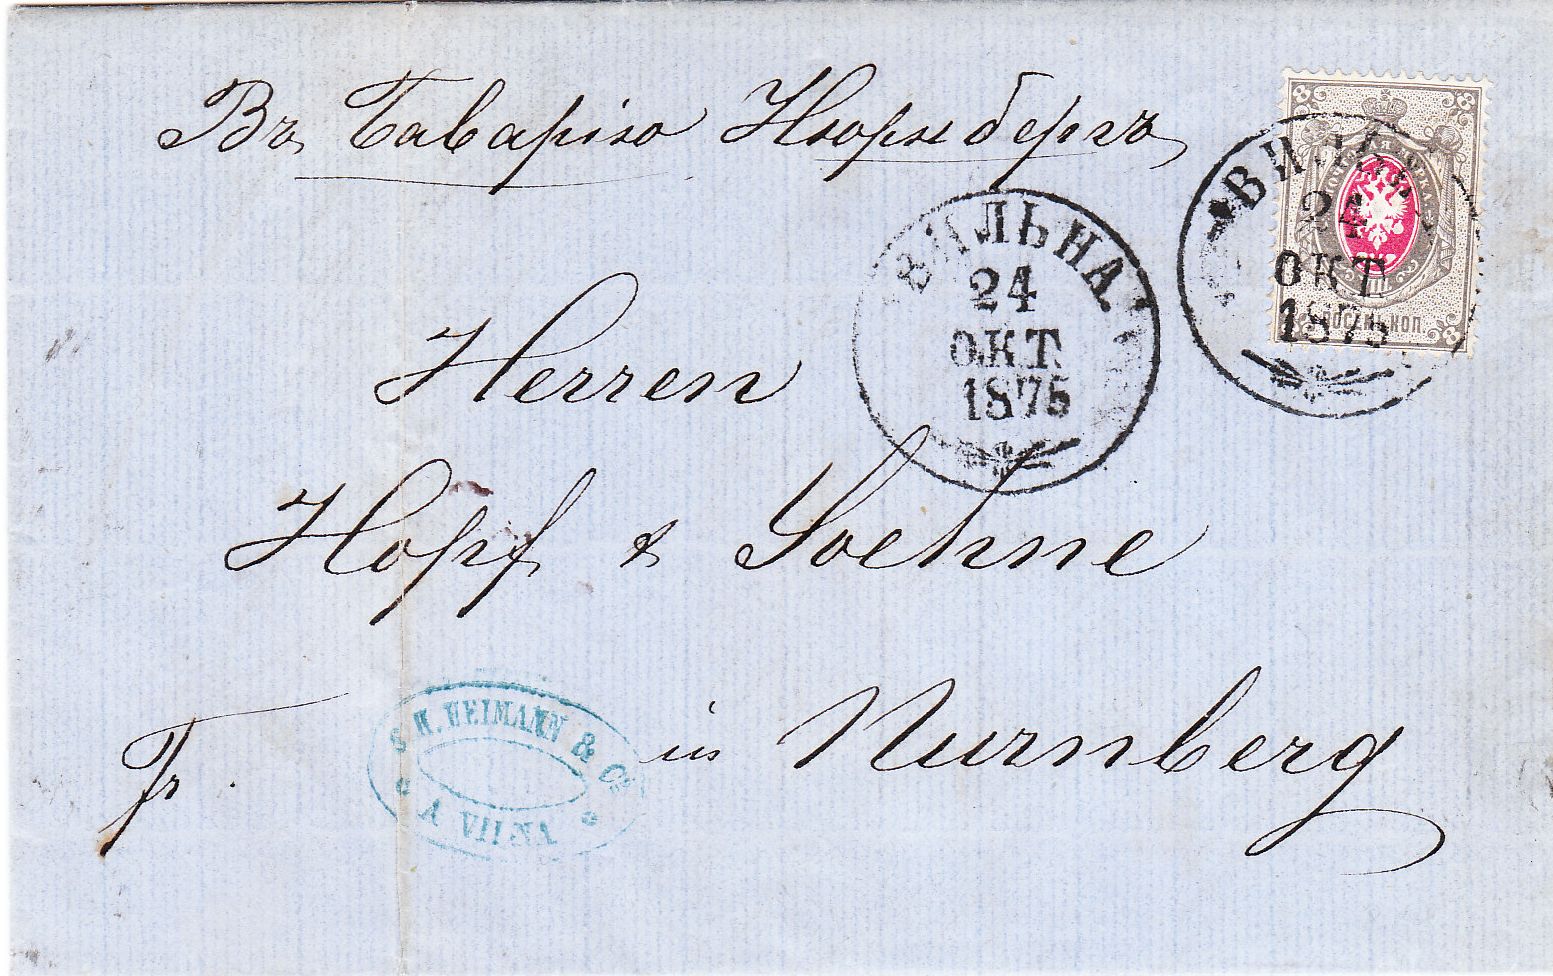 Въ Баварію Нюрнбергъ
8 8
ПОЧТОВАЯ МАРКА
ВОСЕМЬ КОП.
8 8
ВИЛЬНА
24
ОКТ.
1875
ВИЛЬНА
24
ОКТ.
1875
Herren
Hopf & Soehne
in Nurnberg
Fr.
S. H. HEIMANN & Co.
A VILNA